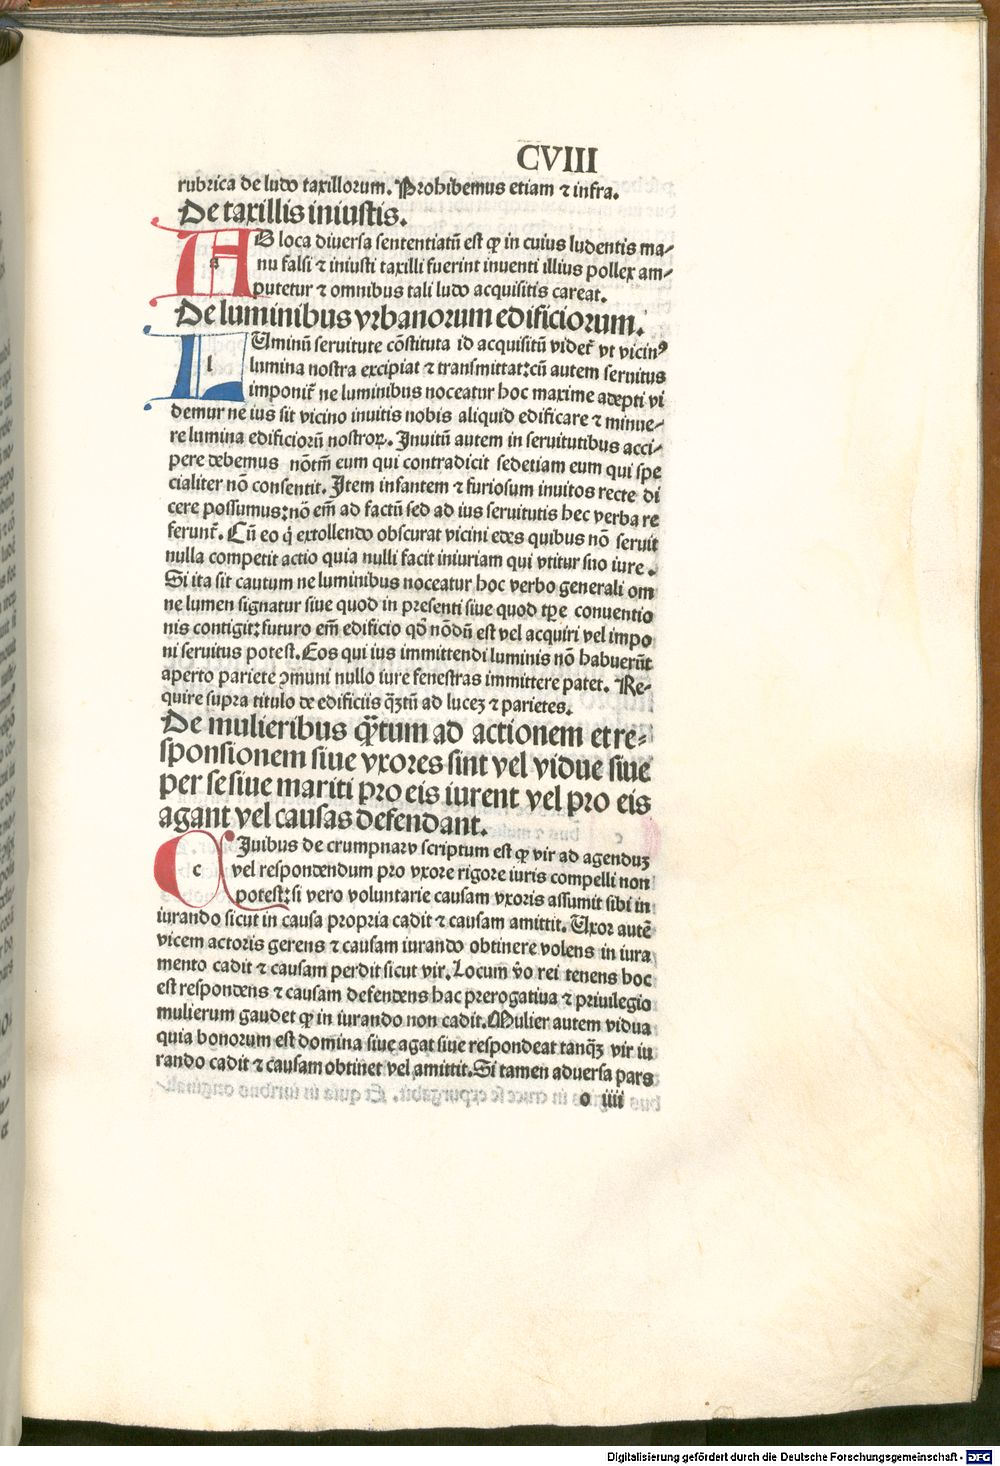 CVIII
rubrica de ludo taxillorum. Prohibemus etiam ⁊ infra.
De taxillis iniustis.
AD loca diuersa sententiatū est ꝙ in cuius ludentis ma-
nu falsi ⁊ iniusti taxilli fuerint inuenti illius pollex am-
putetur ⁊ omnibus tali ludo acquisitis careat.
De luminibus vrbanorum edificiorum.
LUminū seruitute cōstituta id acquisitū videt̄ vt vicinꝰ
lumina nostra excipiat ⁊ transmittat:cū autem seruitus
imponit̄ ne luminibus noceatur hoc maxime adepti vi
demur ne ius sit vicino inuitis nobis aliquid edificare ⁊ minue-
re lumina edificiorū nostroꝝ. Inuitū autem in seruitutibus acci-
pere debemus nōtm̄ eum qui contradicit sedetiam eum qui spe
cialiter nō consentit. Item infantem ⁊ furiosum inuitos recte di
cere possumus:nō em̄ ad factū sed ad ius seruitutis hec verba re
ferunt̄. Cū eo q̇ extollendo obscurat vicini edes quibus nō seruit
nulla competit actio quia nulli facit iniuriam qui vtitur suo iure.
Si ita sit cautum ne luminibus noceatur hoc verbo generali om
ne lumen signatur siue quod in presenti siue quod tꝑe conuentio
nis contigit:futuro em̄ edificio qḋ nōdū est vel acquiri vel impo
ni seruitus potest. Eos qui ius immittendi luminis nō habuerūt
aperto pariete ↄmuni nullo iure fenestras immittere patet. Re-
quire supra titulo de edificiis q̄ꝫtū ad luceꝫ ⁊ parietes.
De mulieribus q̄ꝫtum ad actionem et re-
sponsionem siue vxores sint vel vidue siue
per se siue mariti pro eis iurent vel pro eis
agant vel causas defendant.
CIuibus de crumpnaw scriptum est ꝙ vir ad agenduꝫ
vel respondendum pro vxore rigore iuris compelli non
potest:si vero voluntarie causam vxoris assumit sibi in
iurando sicut in causa propria cadit ⁊ causam amittit. Uxor autē
vicem actoris gerens ⁊ causam iurando obtinere volens in iura
mento cadit ⁊ causam perdit sicut vir. Locum v̄o rei tenens hoc
est respondens ⁊ causam defendens hac prerogatiua ⁊ priuilegio
mulierum gaudet ꝙ in iurando non cadit. Mulier autem vidua
quia bonorum est domina siue agat siue respondeat tanq̄ꝫ vir iu
rando cadit ⁊ causam obtinet vel amittit. Si tamen aduersa pars
o iiii
Digitalisierung gefördert durch die Deutsche Forschungsgemeinschaft - DFG